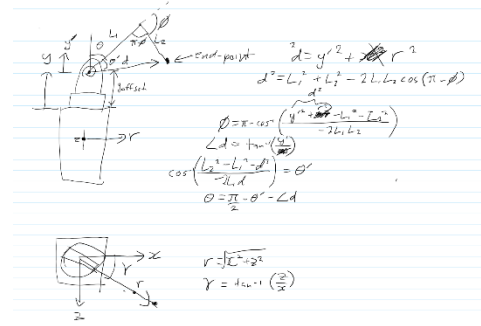 L₁
φ
π-φ
L₂
θ
y'
y
θ'
d
End-point
y offset
z
r
²d = y'² + r²
d² = L₁² + L₂² - 2L₁L₂ cos(π-φ)
d²
φ = π - cos⁻(y'² + -L₁² - L₂² / -2L₁L₂)
∠d = tan⁻¹(y'/r)
cos⁻(L₂² - L₁² - d² / -2L₁d) = θ'
θ = π/2 - θ' - ∠d
x
γ
r
z
r = √x² + z²
γ = tan-1 (z/x)